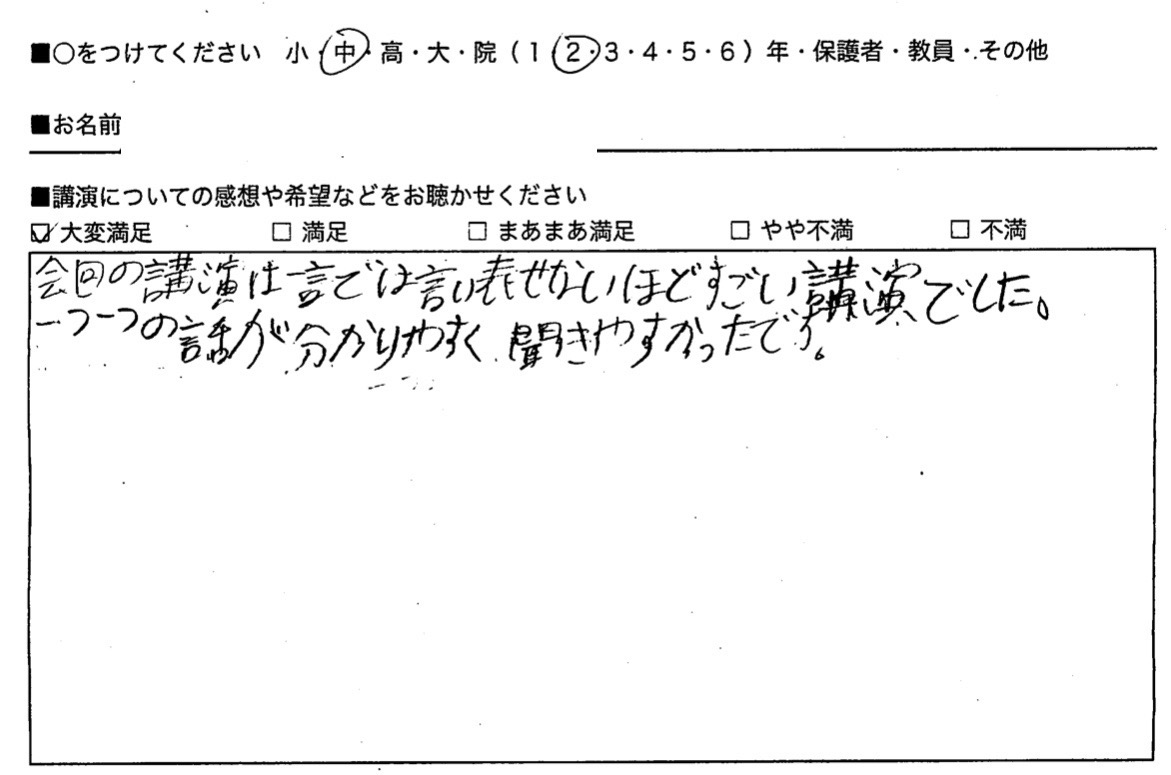 ■○をつけてください 小・中・高・大・院（1・2・3・4・5・6）年・保護者・教員・その他
■お名前
■講演についての感想や希望などをお聴かせください
☑大変満足 □満足 □まあまあ満足 □やや不満 □不満
会回の講演は言では言い表せないほどすごい講演でした。
一つ一つの話が分かりやすく聞きやすかったです。